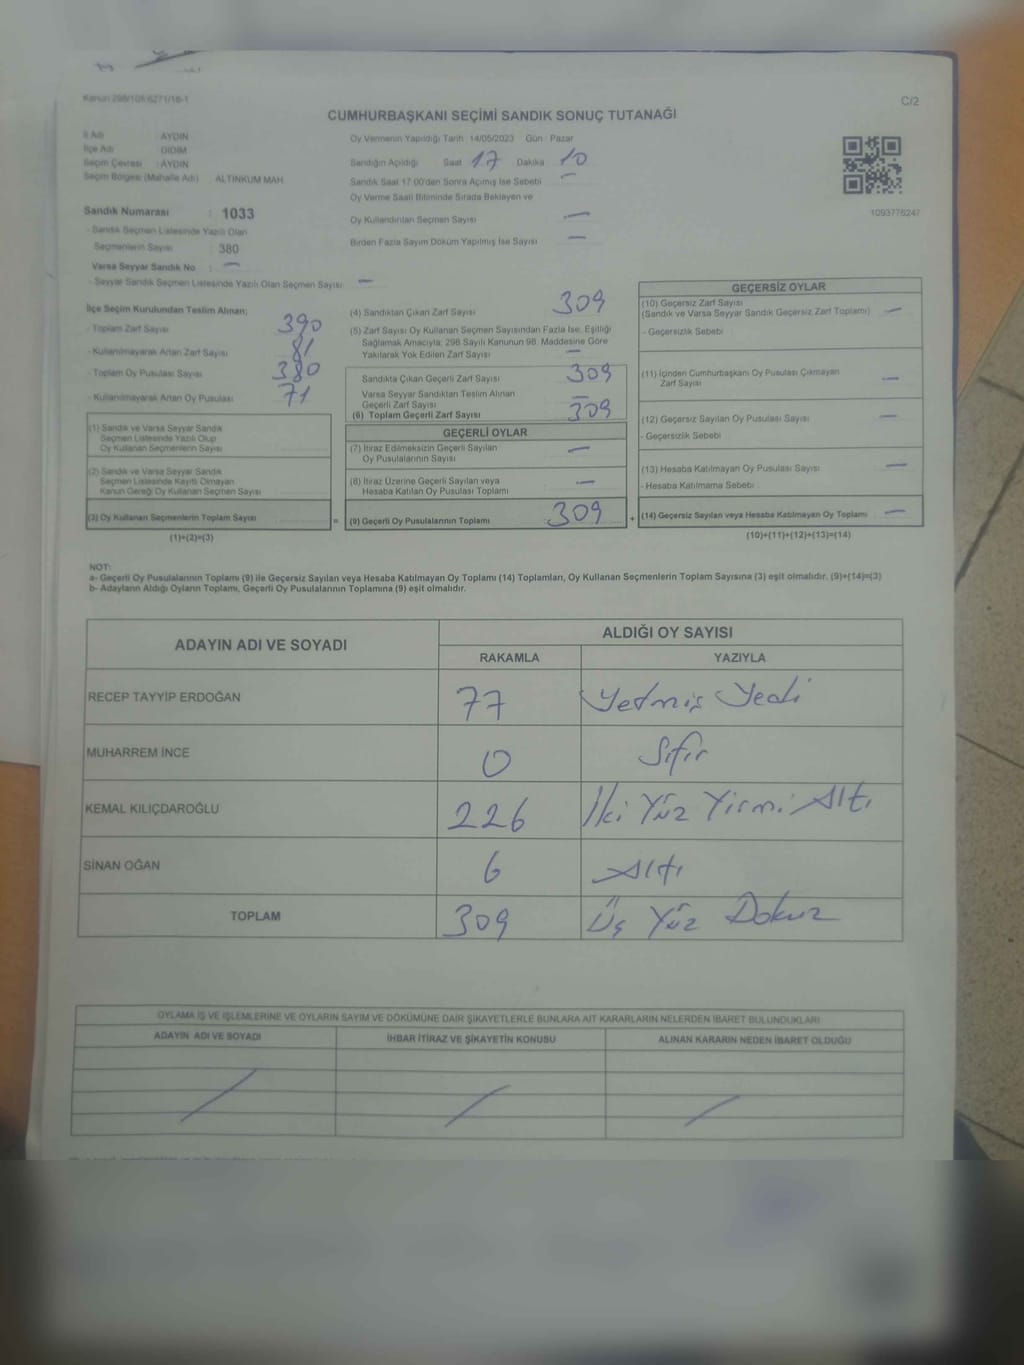 Kanun 298/105,6271/18-1
C/2
CUMHURBAŞKANI SEÇİMİ SANDIK SONUÇ TUTANAĞI
İl Adı AYDIN
İlçe Adı DİDİM
Seçim Çevresi : AYDIN
Seçim Bölgesi (Mahalle Adı) ALTINKUM MAH.
Sandık Numarası : 1033
- Sandık Seçmen Listesinde Yazılı Olan
Seçmenlerin Sayısı : 380
Varsa Seyyar Sandık No : —
- Seyyar Sandık Seçmen Listesinde Yazılı Olan Seçmen Sayısı —
Oy Vermenin Yapıldığı Tarih 14/05/2023 Gün Pazar
Sandığın Açıldığı Saat 17 Dakika 10
Sandık Saat 17:00'den Sonra Açımış İse Sebebi —
Oy Verme Saati Bitiminde Sırada Bekleyen ve
Oy Kullandırılan Seçmen Sayısı —
Birden Fazla Sayım Döküm Yapılmış İse Sayısı —
1093776247
İlçe Seçim Kurulundan Teslim Alınan;
- Toplam Zarf Sayısı 390
- Kullanılmayarak Artan Zarf Sayısı 81
- Toplam Oy Pusulası Sayısı 380
- Kullanılmayarak Artan Oy Pusulası 71
(1) Sandık ve Varsa Seyyar Sandık
Seçmen Listesinde Yazılı Olup
Oy Kullanan Seçmenlerin Sayısı
(2) Sandık ve Varsa Seyyar Sandık
Seçmen Listesinde Kayıtlı Olmayan
Kanun Gereği Oy Kullanan Seçmen Sayısı
(3) Oy Kullanan Seçmenlerin Toplam Sayısı
(1)+(2)=(3)
(4) Sandıktan Çıkan Zarf Sayısı 309
(5) Zarf Sayısı Oy Kullanan Seçmen Sayısından Fazla İse, Eşitliği
Sağlamak Amacıyla, 298 Sayılı Kanunun 98. Maddesine Göre
Yakılarak Yok Edilen Zarf Sayısı —
Sandıkta Çıkan Geçerli Zarf Sayısı 309
Varsa Seyyar Sandıktan Teslim Alınan
Geçerli Zarf Sayısı —
(6) Toplam Geçerli Zarf Sayısı 309
GEÇERLİ OYLAR
(7) İtiraz Edilmeksizin Geçerli Sayılan
Oy Pusulalarının Sayısı —
(8) İtiraz Üzerine Geçerli Sayılan veya
Hesaba Katılan Oy Pusulası Toplamı —
= (9) Geçerli Oy Pusulalarının Toplamı 309
GEÇERSİZ OYLAR
(10) Geçersiz Zarf Sayısı
(Sandık ve Varsa Seyyar Sandık Geçersiz Zarf Toplamı) —
- Geçersizlik Sebebi
(11) İçinden Cumhurbaşkanı Oy Pusulası Çıkmayan
Zarf Sayısı —
(12) Geçersiz Sayılan Oy Pusulası Sayısı —
- Geçersizlik Sebebi
(13) Hesaba Katılmayan Oy Pusulası Sayısı —
- Hesaba Katılmama Sebebi
+ (14) Geçersiz Sayılan veya Hesaba Katılmayan Oy Toplamı —
(10)+(11)+(12)+(13)=(14)
NOT:
a- Geçerli Oy Pusulalarının Toplamı (9) ile Geçersiz Sayılan veya Hesaba Katılmayan Oy Toplamı (14) Toplamları, Oy Kullanan Seçmenlerin Toplam Sayısına (3) eşit olmalıdır. (9)+(14)=(3)
b- Adayların Aldığı Oyların Toplamı, Geçerli Oy Pusulalarının Toplamına (9) eşit olmalıdır.
ADAYIN ADI VE SOYADI
ALDIĞI OY SAYISI
RAKAMLA YAZIYLA
RECEP TAYYİP ERDOĞAN 77 Yetmiş Yedi
MUHARREM İNCE 0 Sıfır
KEMAL KILIÇDAROĞLU 226 İki Yüz Yirmi Altı
SİNAN OĞAN 6 Altı
TOPLAM 309 Üç Yüz Dokuz
OYLAMA İŞ VE İŞLEMLERİNE VE OYLARIN SAYIM VE DÖKÜMÜNE DAİR ŞİKAYETLERLE BUNLARA AİT KARARLARIN NELERDEN İBARET BULUNDUKLARI
ADAYIN ADI VE SOYADI İHBAR İTİRAZ VE ŞİKAYETİN KONUSU ALINAN KARARIN NEDEN İBARET OLDUĞU